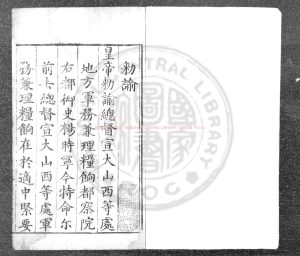 勅諭
皇帝勅諭總督宣大山西等處
地方軍務兼理糧餉都察院
右都御史楊時寧今特命尔
前去總督宣大山西等處軍
務兼理糧餉在於適中緊要